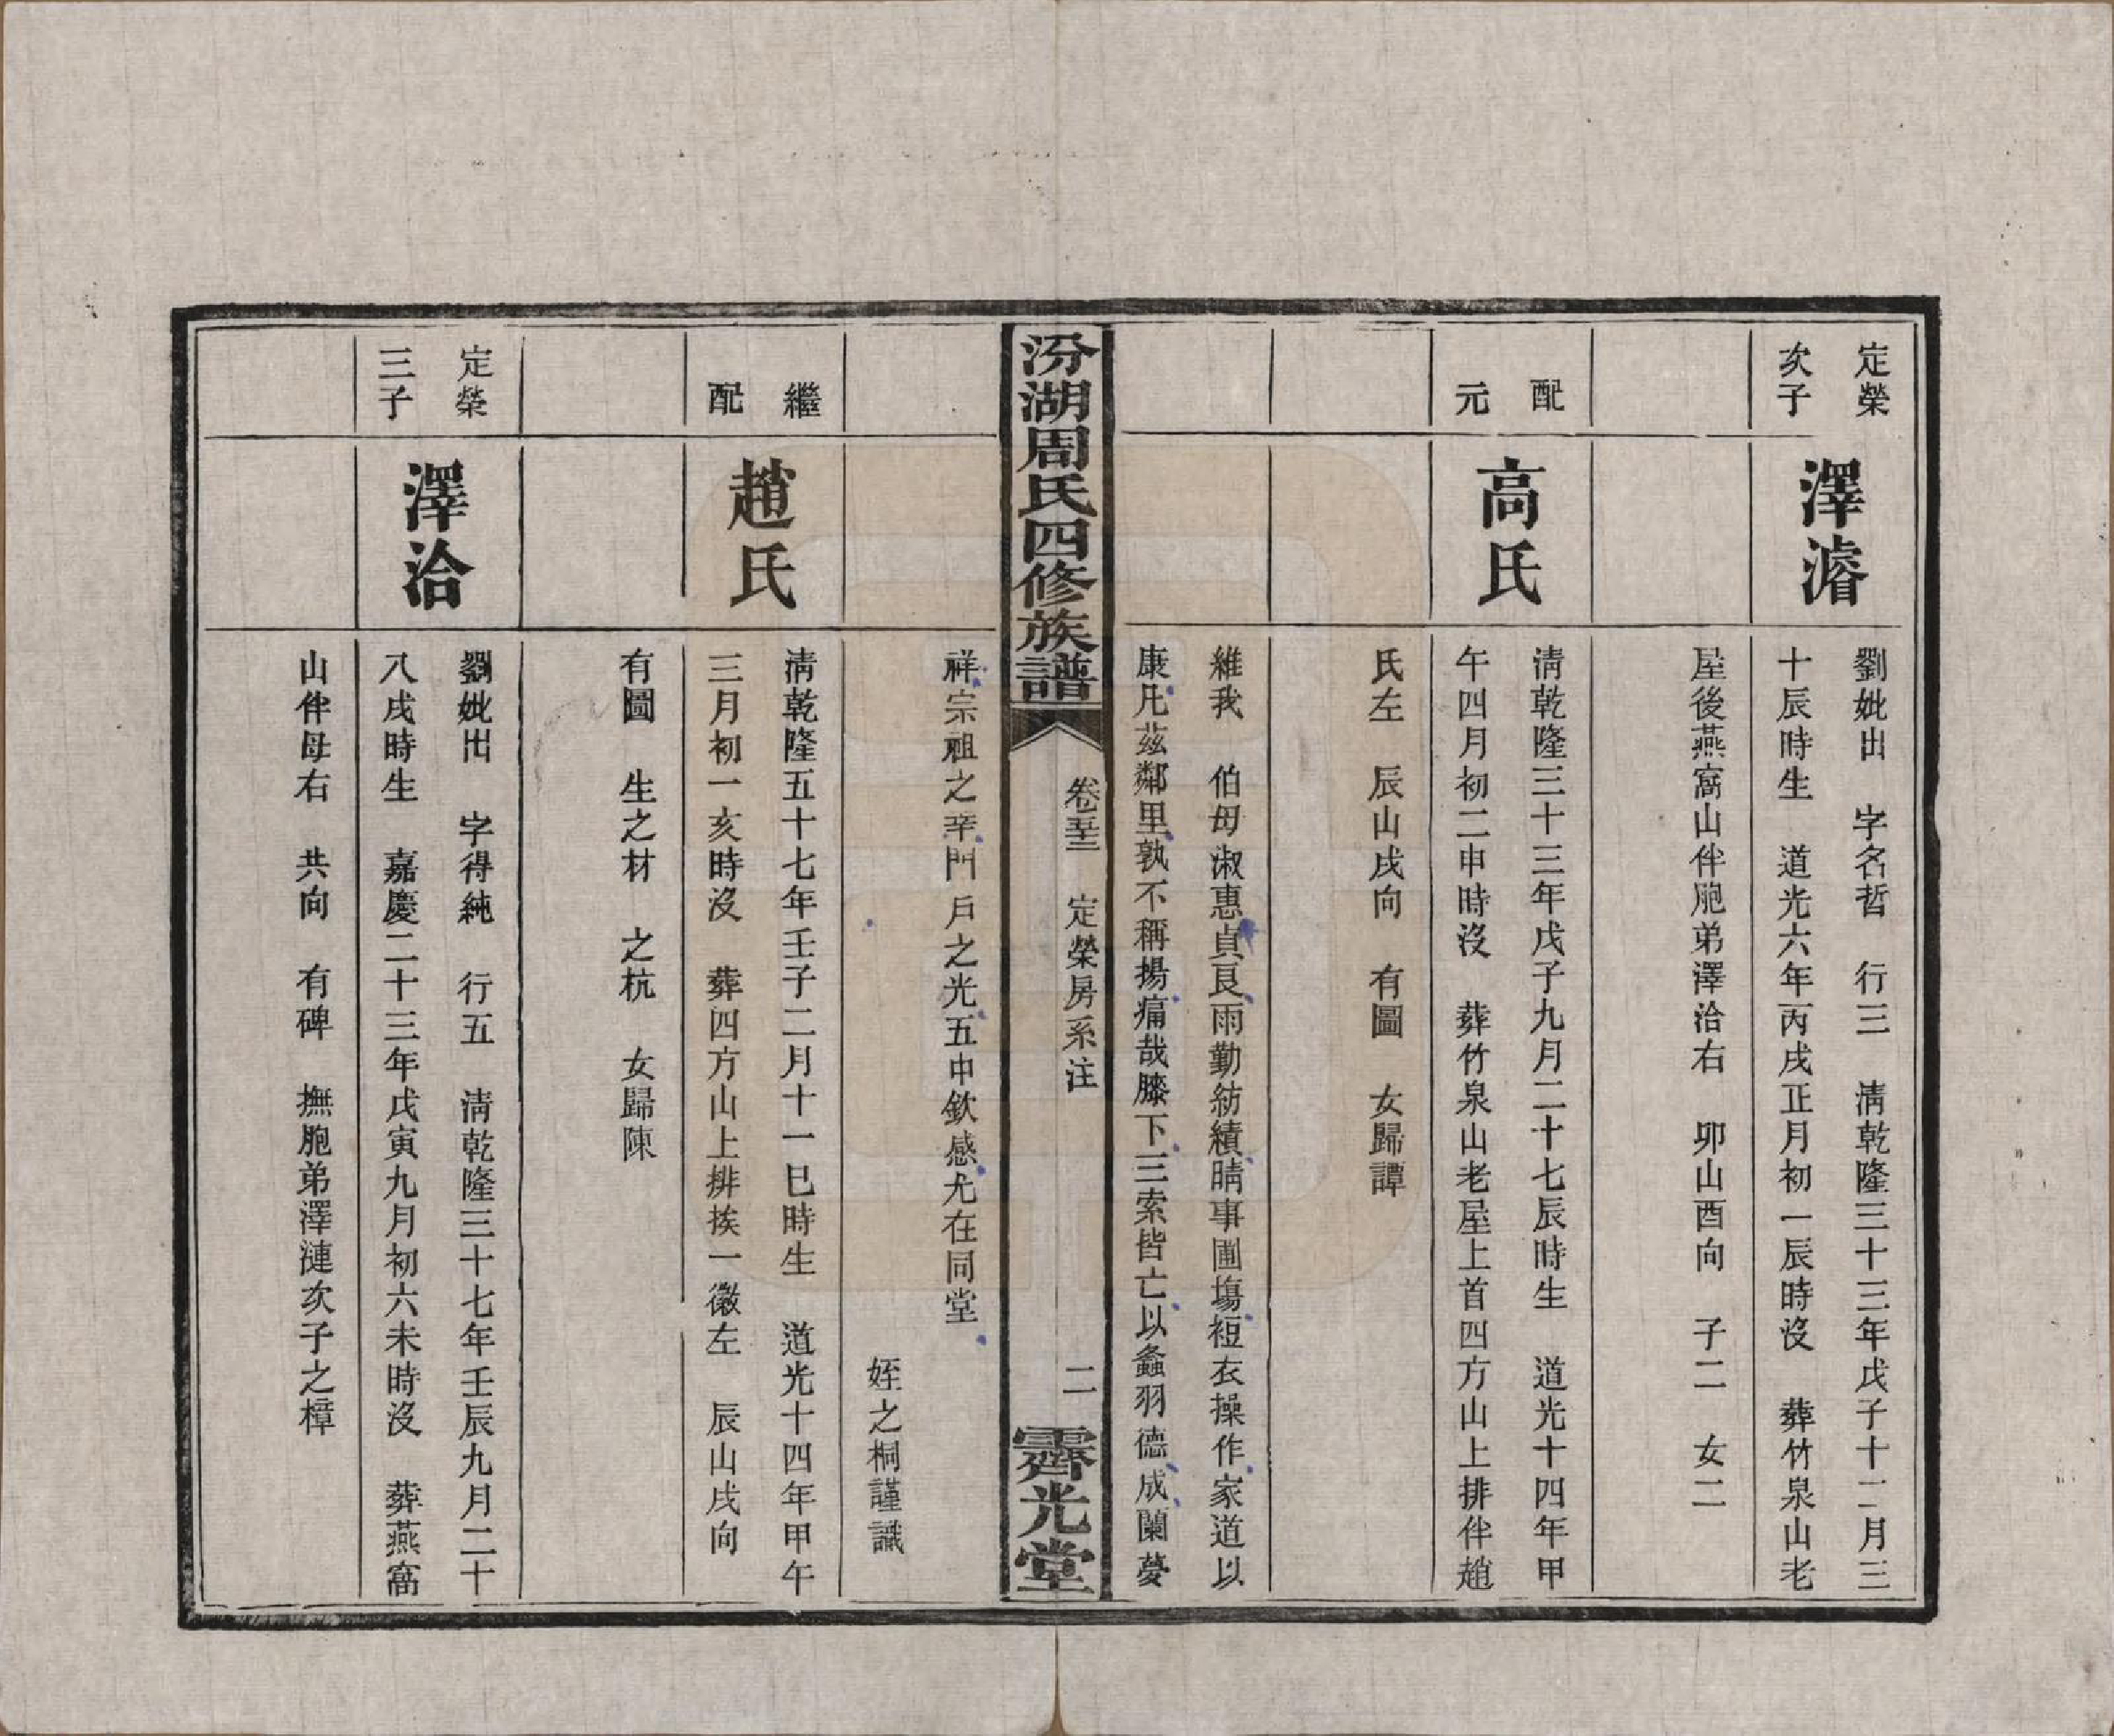 定榮
次子
澤濬
劉妣出　字名哲　行三　清乾隆三十三年戊子十二月三
十辰時生　道光六年丙戌正月初一辰時沒　葬竹泉山老
屋後燕窩山伴胞弟澤洽右　卯山酉向　子二　女二
配
元
高氏
清乾隆三十三年戊子九月二十七辰時生　道光十四年甲
午四月初二申時沒　葬竹泉山老屋上首四方山上排伴趙
氏左　辰山戌向　有圖　女歸譚
維我　伯母淑惠貞良雨勤紡績晴事圃塲裋衣操作家道以
康凡茲鄰里孰不稱揚痛哉膝下三索皆亡以螽羽德成蘭夢
汾湖周氏四修族譜
卷三　定榮房系注
二
霽光堂
祥宗祖之幸門戶之光五中欽感尤在同堂
姪之桐謹識
繼
配
趙氏
清乾隆五十七年壬子二月十一巳時生　道光十四年甲午
三月初一亥時沒　葬四方山上排挨一徽左　辰山戌向
有圖　生之材　之杭　女歸陳
定榮
三子
澤洽
劉妣出　字得純　行五　清乾隆三十七年壬辰九月二十
八戌時生　嘉慶二十三年戊寅九月初六未時沒　葬燕窩
山伴母右　共向　有碑　撫胞弟澤漣次子之樟